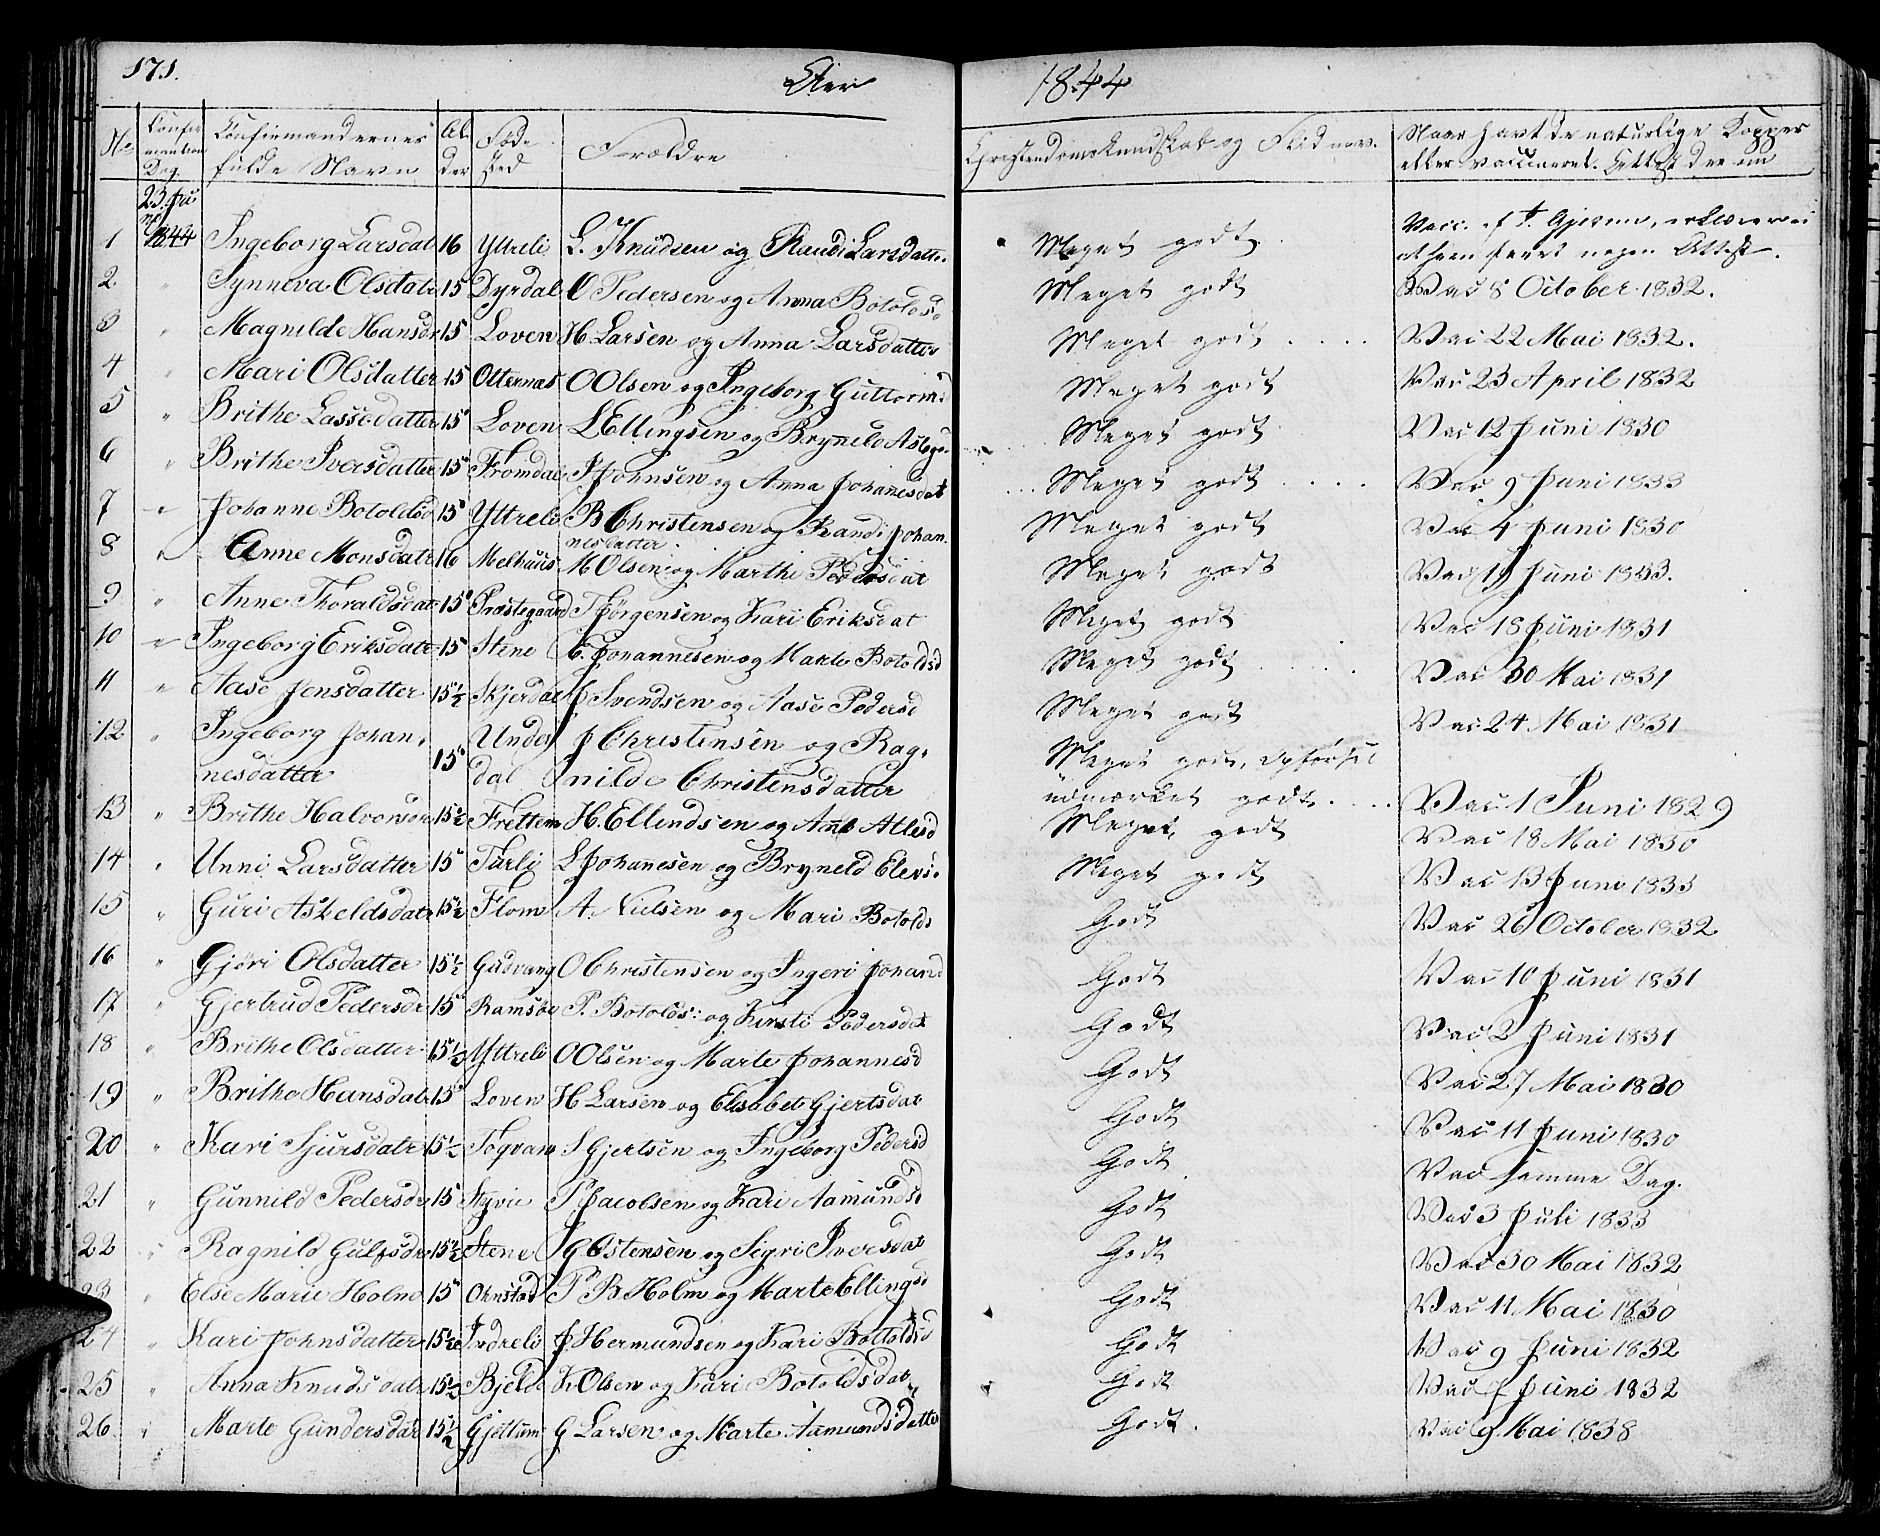 171.
Aar
1844
No
Confir
mantion
Dag
Confirmandernes
fulde Navn
Al
der
Føde
sted
Forældre
Christendomskundskab og Flid nov.
Naar havt de naturlige Kopper
eller vaccineret. Attest derom
23. Ju
ni
1844
1 Ingeborg Larsdat 16 Yttreli L. Knudsen og Raudi Larsdatter Meget godt Vacc. af J. Gjerum, erklærer
at have faaet nogen Attest.
2 " Synneva Olsdatr 15 Dyrdal O Pedersen og Anna Botolds Meget godt Vac 8 October 1832.
3 " Magnilde Hansdr 15 Loven H. Larsen og Anna Larsdatter Meget godt Vac 22 Mai 1832.
4 " Mari Olsdatter 15 Otternæs O Olsen og Ingeborg Guttormd Meget godt Vac 23 April 1832
5 " Brithe Lassedatter 15 Loven L Ellingsen og Brynild Meget godt Vac 12 Juni 1830
6 " Brithe Iversdatter 15 Fromdal I Johnsen og Anna Johanesdat Meget godt Vac 9 Juni 1833
7 " Johanne Botoldsd 15 Yttreli B Christensen og Randi Johan-
nesdatter Meget godt Vac 4 Juni 1830
8 " Anne Monsdatr 16 Melhuus M Olsen og Marthe Pedersdat Meget godt Vac 19 Juni 1833.
9 " Anne Thoraldsdat 15 Præstegaard T Jørgensen og Kari Eriksdat Meget godt Vac 18 Juni 1831
10 " Ingeborg Eriksdatr 15 Stene E. Johannesen og Marte Botoldsd Meget godt Vac 30 Mai 1831
11 " Aase Jensdatter 15½ Skjerdal J Svendsen og Aase Pedersd Meget godt Vac 24 Mai 1831
12 " Ingeborg Johan-
nesdatter 15 Under
dal J Christensen og Rag-
nilde Christensdatter Meget godt, opførsel
udmærket godt Vac 1 Juni 1829
13 " Brithe Halvorsdr 15½ Frettem H. Ellendsen og Anne Atlesd Meget godt Vac 18 Mai 1830
14 " Unni Larsdatter 15 Turli L Johannesen og Bryneld Meget godt Vac 13 Juni 1833
15 " Guri Askeldsdatr 15½ Flom A. Nielsen og Mari Botolds Godt Vac 26 October 1832
16 " Gjøri Olsdatter 15½ Gudvang O Christensen og Ingeri Johand Godt Vac 10 Juni 1831
17 " Gjertrud Pedersdr 15 Ramsøe P. Botolds: og Kirsti Pedersdat Godt Vac 2 Juni 1831
18 " Brithe Olsdatter 15½ Yttreli O Olsen og Marte Johannesd Godt Vac 27 Mai 1830
19 " Brithe Hansdatr 15 Loven H Larsen og Elisabet Gjertsdat Godt Vac 11 Juni 1830
20 " Kari Sjursdatr 15½ Foqvam S Gjertsen og Ingeborg Pedersd Godt Vac samme Dag.
21 " Gunnild Pedersdr 15 Styvie P. Jacobsen og Kari Aamundsd Godt Vac 3 Juli 1833
22 " Ragnild Gulfsdr 15½ Stene G Ostensen og Sigri Iversdat Godt Vac 30 Mai 1832
23 " Else Marie Holm 15 Ohnstad P B Holm og Marte Ellingsd Godt Vac 11 Mai 1830
24 " Kari Johnsdatter 15½ Indreli J Hermundsen og Kari Bottoldsd Godt Vac 9 Juni 1832
25 " Anna Knudsdatr 15½ Bjelde K Olsen og Kari Botoldsdat Godt Vac 7 Juni 1832
26 " Marte Gundersdat 15½ Gjettum G Larsen og Marte Aamundsdatter Godt. Vac 9 Mai 1838